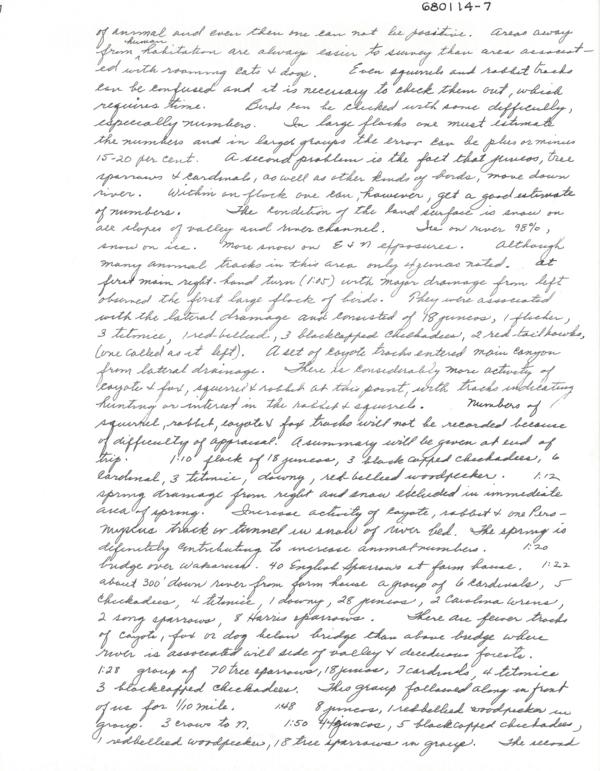 680114-7
of animal and even then one can not be positive. Areas away
from human habitation are always easier to survey than area associat-
ed with roaming cats & dogs. Even squirrels and rabbit tracks
can be confused and it is necessary to check them out, which
requires time. Birds can be checked with some difficulty,
especially numbers. In large flocks one must estimate
the numbers and in larger groups the error can be plus or minus
15-20 per cent. A second problem is the fact that juncos, tree
sparrows & cardinals, as well as other kinds of birds, move down
river. Within a flock one can, however, get a good estimate
of numbers. The condition of the land surface is snow on
all slopes of valley and river channel. Ice on river 98%,
snow on ice. More snow on E & N exposures. Although
many animal tracks in this area only 4 juncos noted. At
first main right-hand turn (1:05) with major drainage from left
observed the first large flock of birds. They were associated
with the lateral drainage and consisted of 18 juncos, 1 flicker,
3 titmice, 1 red-bellied, 3 blackcapped chickadees, 2 red-tail hawks,
(one called as it left). A set of coyote tracks entered main canyon
from lateral drainage. There is considerably more activity of
coyote & fox, squirrel & rabbit at this point, with tracks indicating
hunting or interest in the rabbit & squirrels. Numbers of
squirrel, rabbit, coyote & fox tracks will not be recorded because
of difficulty of appraisal. A summary will be given at end of
trip. 1:10 flock of 18 juncos, 3 black capped chickadees, 6
cardinal, 3 titmice, downy, red-bellied woodpecker. 1:12
spring drainage from right and snow in immediate
area of spring. Increase activity of coyote, rabbit & one Pero-
myscus track or tunnel in snow of river bed. The spring is
definitely contributing to increase animal numbers. 1:20
bridge over Wakarusa. 40 English Sparrows at farm house. 1:22
about 300' down river from farm house a group of 6 cardinals, 5
chickadees, 4 titmice, 1 downy, 28 juncos, 2 Carolina wrens,
2 song sparrows, 8 Harris sparrows. There are fewer tracks
of coyote, fox or dog below bridge than above bridge where
river is associated with side of valley & deciduous forests.
1:28 group of 70 tree sparrows, 18 juncos, 7 cardinals, 4 titmice
3 blackcapped chickadees. This group followed along in front
of us for 1/10 mile. 1:48 8 juncos, 1 redbellied woodpecker in
group. 3 crows to N. 1:50 juncos, 5 blackcapped chickadees,
1 redbellied woodpecker, 18 tree sparrows in group. The second